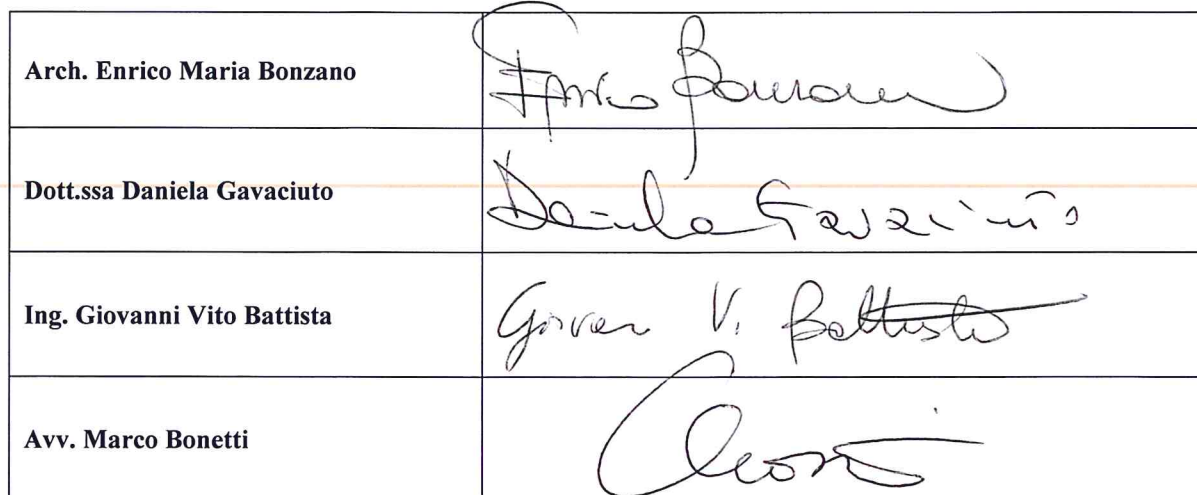 Arch. Enrico Maria Bonzano Enrico Bonzano
Dott.ssa Daniela Gavaciuto Daniela Gavaciuto
Ing. Giovanni Vito Battista Giovan V. Battista
Avv. Marco Bonetti